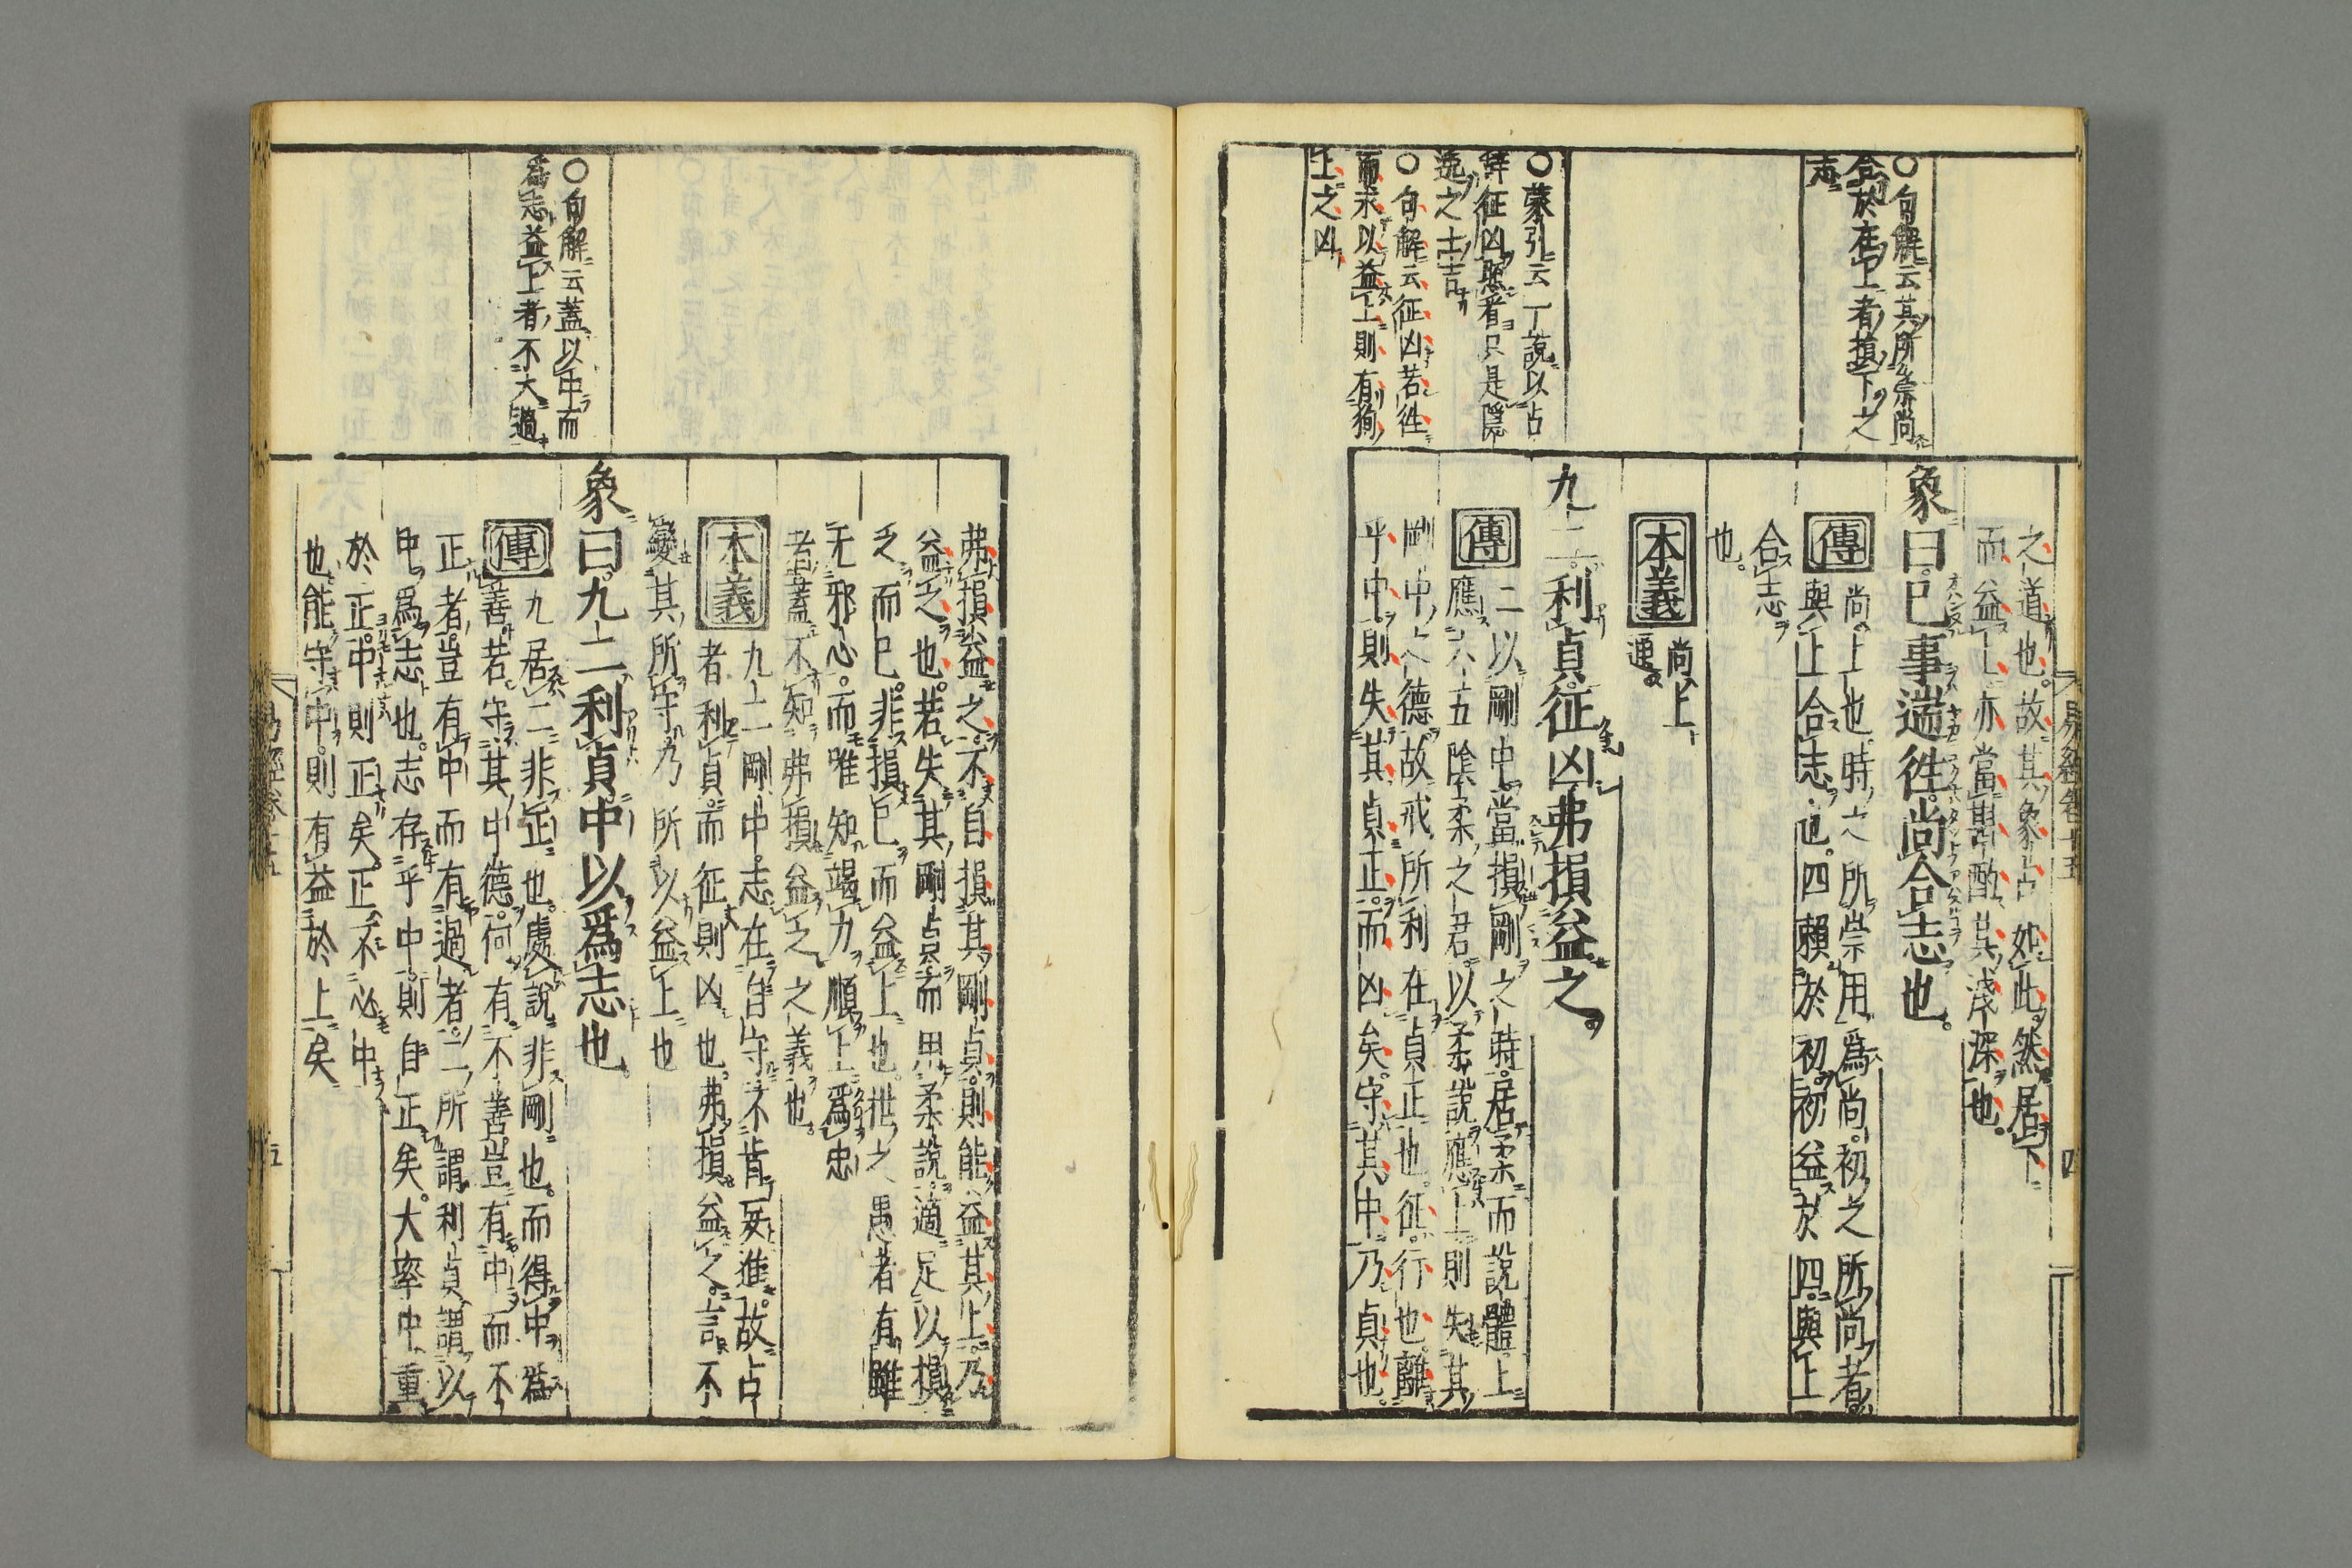 易經卷十五
四
〇句解云其所崇尚
合於在上者損下之
志
之道也。故其象占如此。然居下
而益上亦當斟酌其淺深也。
象曰。已事遄徃。尚合志也。
傳
尚上也。時之所崇用爲尚。初之所尚者。
與上合志也。四賴於初。初益於四。與上
合志
也。
本義
尚上
通。
〇蒙引云一說以占
解征凶愚者只是隱
逸之士吉
〇句解云征凶若徃
而求以益上則有狥
上之凶
九二。利貞。征凶。弗損益之。
傳
二以剛中。當損剛之時。居柔而說體。上
應六五陰柔之君。以柔說應上。則失其
剛中之德。故戒所利在貞正也。征。行也。離
乎中。則失其貞正。而凶矣。守其中乃貞也。
弗損益之。不自損其剛貞。則能益其上。乃
益之也。若失其剛貞。而用柔說。適足以損
之而已。非損已而益上也。世之愚者有雖
无邪心。而唯知竭力順上爲忠
者。蓋不知弗損益之之義也。
本義
九二剛中。志在自守。不肯妄進。故占
者利貞。而征則凶也。弗損益之。言不
變其所守乃所以益上也
〇句解云蓋以中而
爲志益上者不大過
象曰。九二利貞。中以爲志也。
傳
九居二非正也。處說非剛也。而得中爲
善。若守其中德。何有不善。豈有中而不
正者。豈有中而有過者。二所謂利貞。謂以
中爲志也。志存乎中。則自正矣。大率中重
於正。中則正矣。正不必中
也。能守中。則有益於上矣
易經卷十五
五